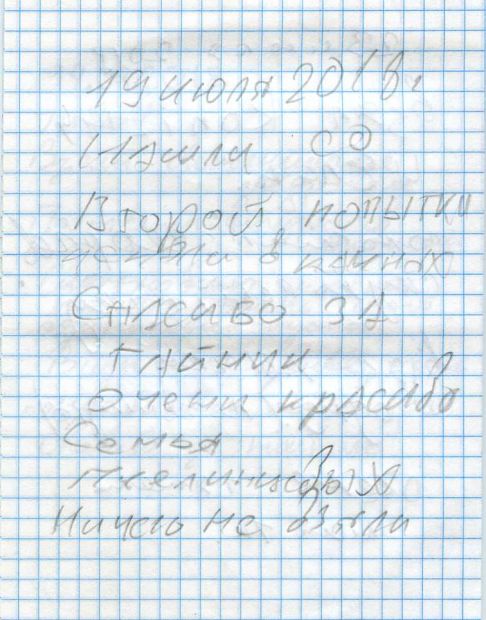 19 июля 2018 г
Нашли со
Второй попытки
искали в камнях
Спасибо за
тайник
очень красиво
Семья
Пчелинцевых
Ничего не взяли